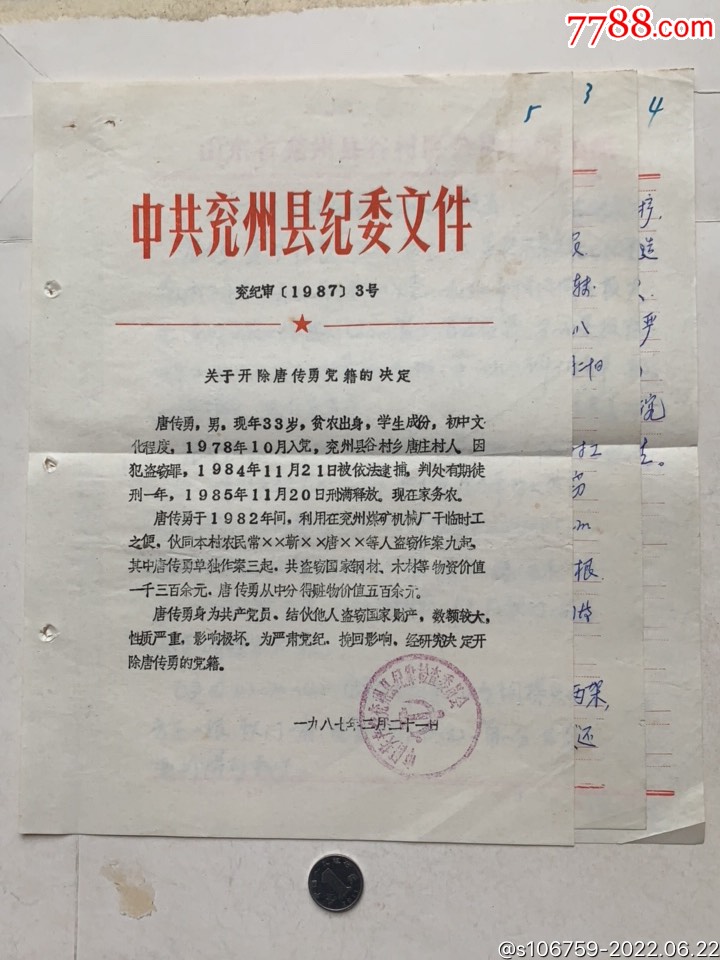 7788.com
5
3
4
中共兖州县纪委文件
兖纪审〔1987〕3号
关于开除唐传勇党籍的决定
唐传勇，男，现年33岁，贫农出身，学生成份，初中文
化程度，1978年10月入党，兖州县谷村乡唐庄村人。因
犯盗窃罪，1984年11月21日被依法逮捕，判处有期徒
刑一年，1985年11月20日刑满释放。现在家务农。
唐传勇于1982年间，利用在兖州煤矿机械厂干临时工
之便，伙同本村农民常××靳××唐××等人盗窃作案九起，
其中唐传勇单独作案三起，共盗窃国家钢材、木材等物资价值
一千三百余元，唐传勇从中分得赃物价值五百余元。
唐传勇身为共产党员，结伙他人盗窃国家财产，数额较大，
性质严重，影响极坏。为严肃党纪，挽回影响，经研究决定开
除唐传勇的党籍。
一九八七年三月二十一日
根
还
严
@s106759-2022.06.22